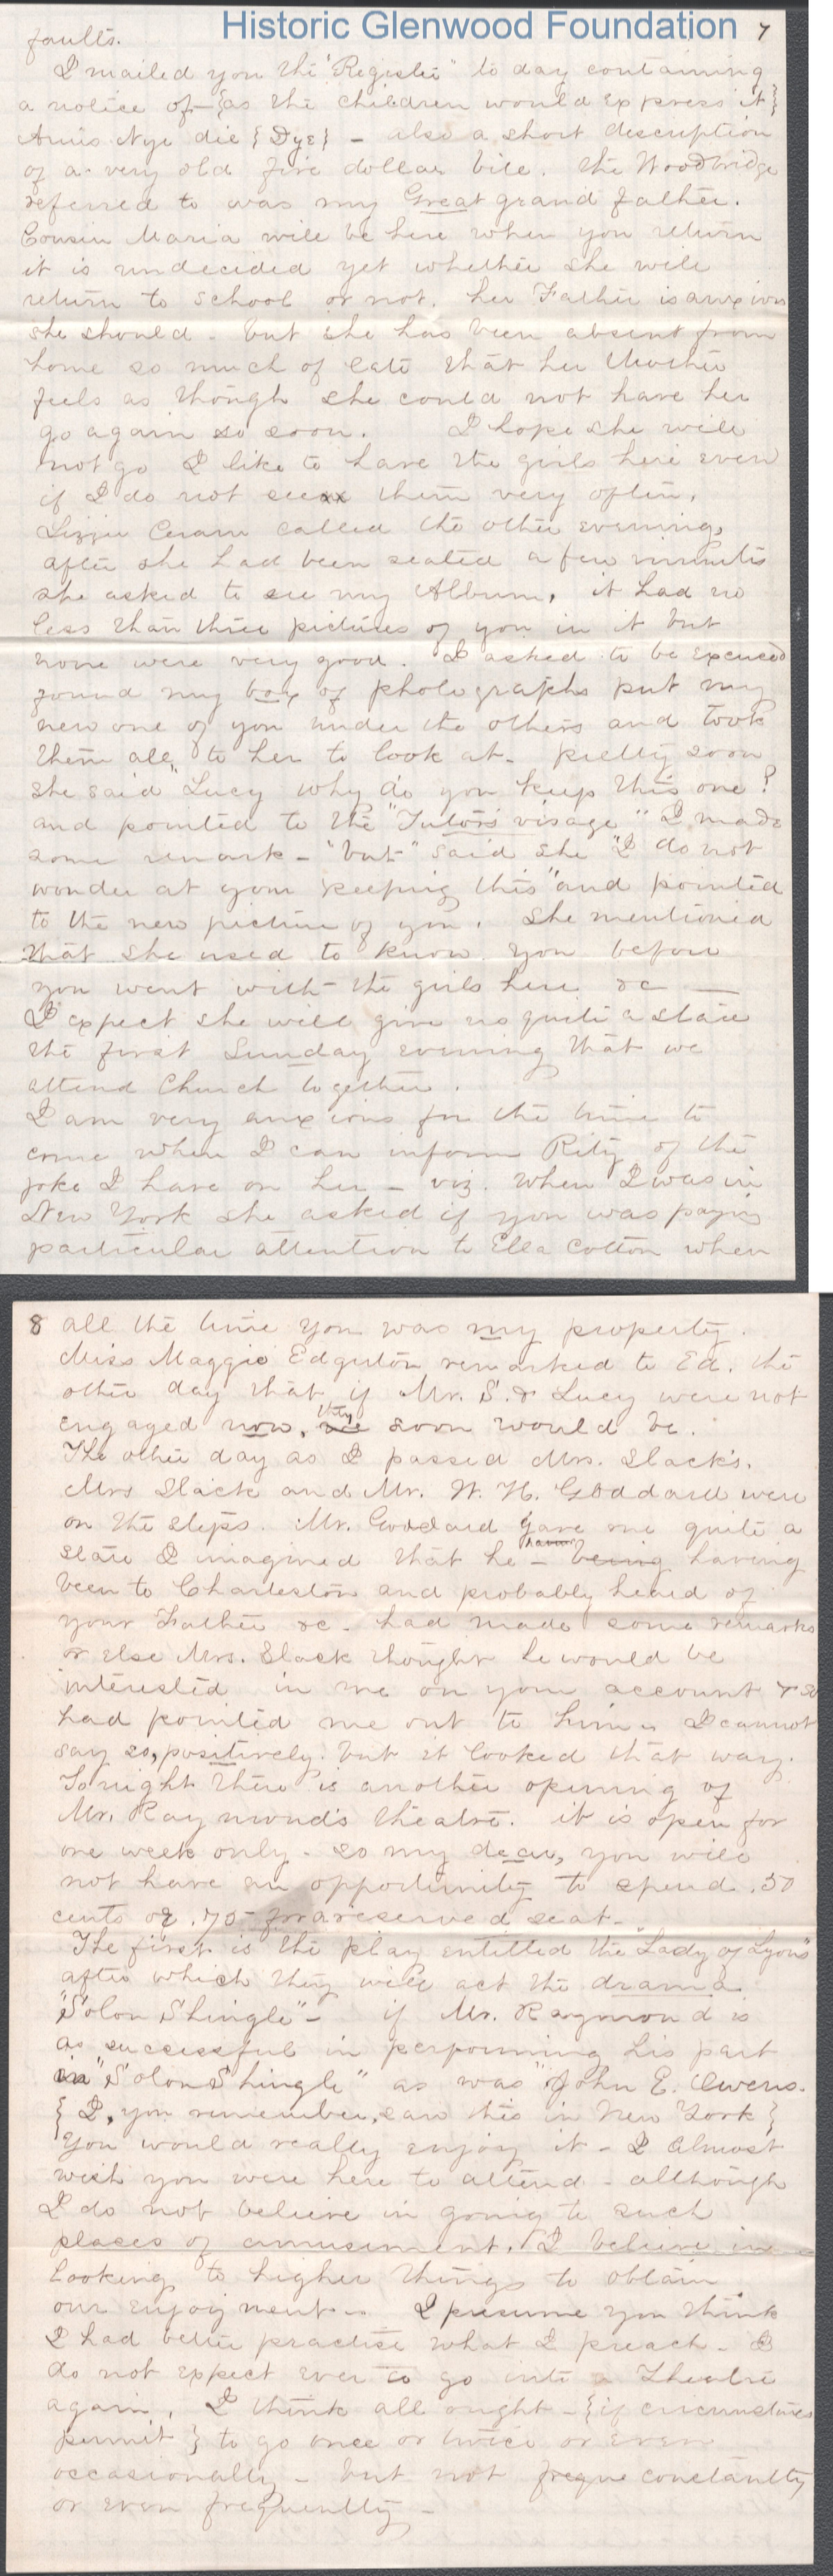 Historic Glenwood Foundation 7
faults.
I mailed you the "Register" to day containing
a notice of - {as the children would express it}
Annis Nye die {Dye} - also a short description
of a very old five dollar bill. The Woodbridge
referred to was my Great grand father.
Cousin Maria will be here when you return
it is undecided yet whether she will
return to school or not. her Father is anxious
she should - but she has been absent from
home so much of late that her Mother
feels as though she could not have her
go again so soon. I hope she will
not go I like to have the girls here even
if I do not see them very often.
Lizzie Ceram called the other evening,
after she had been seated a few minutes
she asked to see my Album, it had no
less than three pictures of you in it but
none were very good. I asked to be excused
found my box of photographs put my
new one of you under the others and took
them all to her to look at - pretty soon
she said "Lucy why do you keep this one?
and pointed to the "Tutors visage" I made
some remark - "but" said she "I do not
wonder at your keeping this" and pointed
to the new picture of you. She mentioned
that she used to know you before
you went with the girls here &c —
I expect she will give us quite a stare
the first Sunday evening that we
attend Church together.
I am very anxious for the time to
come when I can inform Rity of the
joke I have on her - viz. When I was in
New York she asked if you was paying
particular attention to Ella Cotton when
8 all the time you was my property.
Miss Maggie Edgerton remarked to Ed. the
other day that if Mr. S. & Lucy were not
engaged now, they soon would be.
The other day as I passed Mrs. Slack's.
Mrs Slack and Mr. W. H. Goddard were
on the steps. Mr. Goddard gave me quite a
stare I imagined that he - having being having
been to Charleston and probably heard of
your Father &c - had made some remarks
or else Mrs. Slack thought he would be
interested in me on your account & so
had pointed me out to him - I cannot
say so, positively. but it looked that way.
Tonight there is another opening of
Mr. Raymond's theatre. it is open for
one week only - so my dear, you will
not have an opportunity to spend .50
cents or .75 for a reserved seat -
The first is the play entitled the "Lady of Lyons"
after which they will act the drama
"Solon Shingle" - if Mr. Raymond is
as successful in performing his part
in "Solon Shingle" as was "John E. Owens.
{I, you remember, saw this in New York}
You would really enjoy it - I almost
wish you were here to attend - although
I do not believe in going to such
places of amusement. I believe in
looking to higher things to obtain
our enjoyment - I presume you think
I had better practise what I preach - I
do not expect ever to go into a Theatre
again, I think all ought - {if circumstances
permit} to go once or twice or even
occasionally - but not freque constantly
or even frequently -